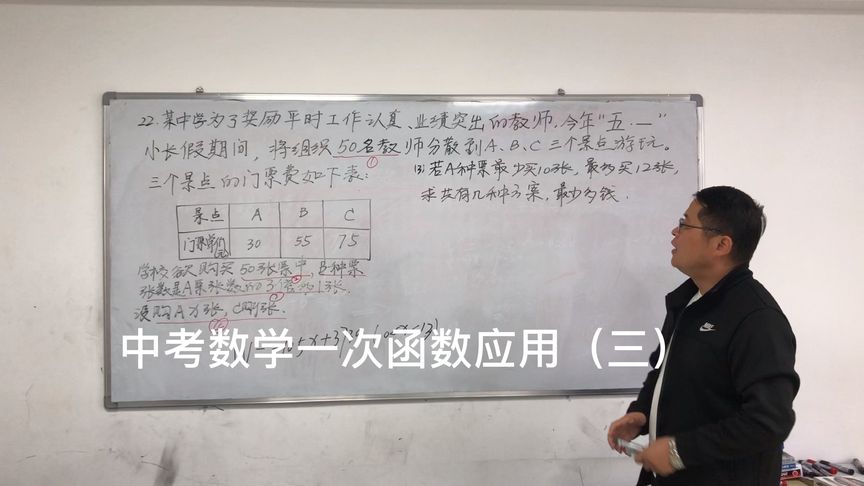 22.某中学为了奖励平时工作认真、业绩突出的教师.今年"五·一"
小长假期间,将组织50名教师分散到A、B、C三个景点游玩。
①
三个景点的门票费如下表:
(3)若A种票最少买10张,最多买12张,
求共有几种方案,最少多钱.
景点 A B C
门票单价/元 30 55 75
学校欲购买50张票中,B种票
张数是A票张数的3倍多1张.
设购A x张,C y张.
中考数学一次函数应用(三)